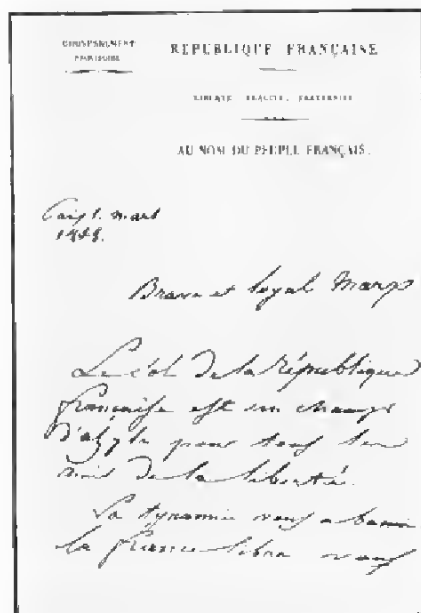 GOUVERNEMENT
PROVISOIRE
RÉPUBLIQUE FRANÇAISE
LIBERTÉ, ÉGALITÉ, FRATERNITÉ
AU NOM DU PEUPLE FRANÇAIS.
Paris 1. mars
1848.
Brave et loyal Marx
Le sol de la République
française est un champ
d'azyle pour tous les
amis de la liberté.
La tyrannie vous a banni
la france libre vous